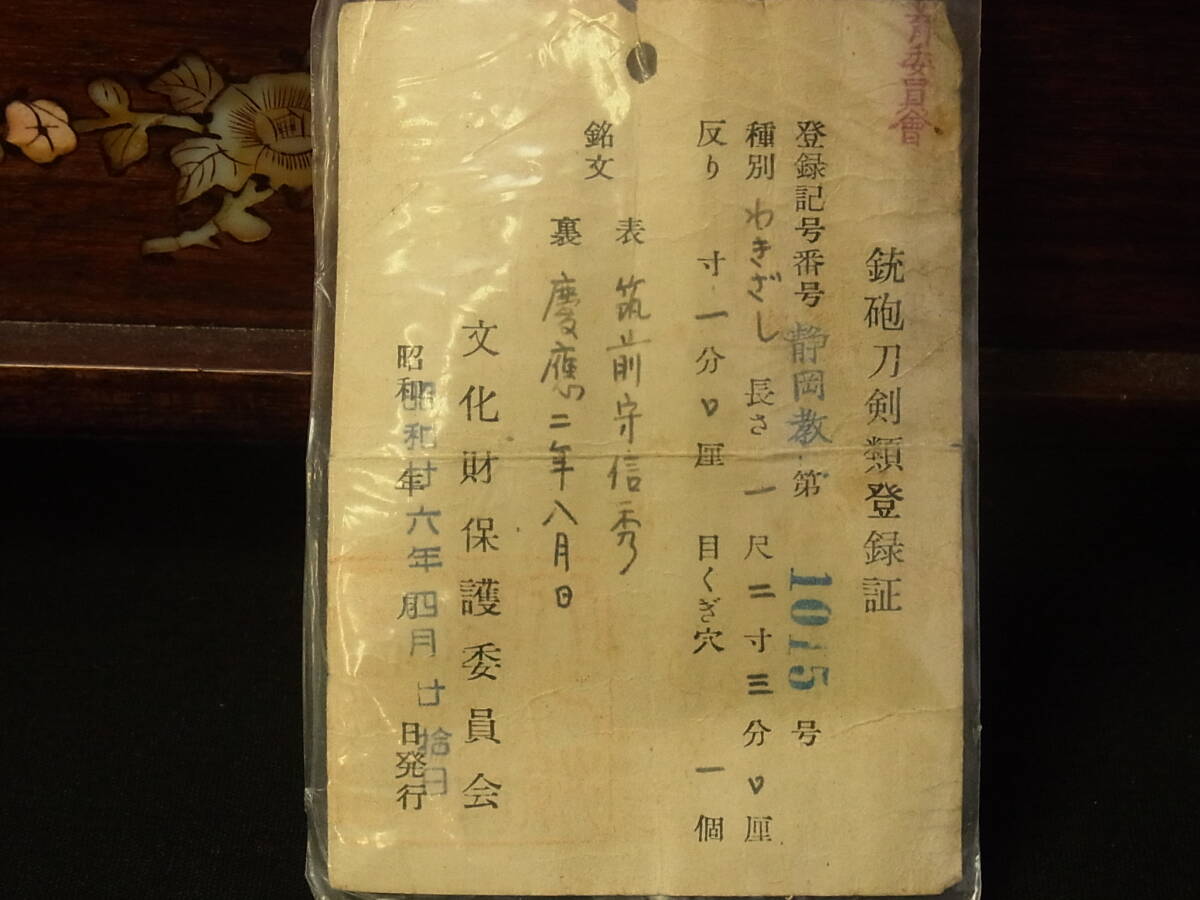 育委員會
銃砲刀剣類登録証
登録記号番号 静岡教 第 1015 号
種別 わきざし 長さ 一尺二寸三分〇厘
反り 寸一分〇厘 目くぎ穴 一個
銘文 表 筑前守信秀
裏 慶應二年八月日
文化財保護委員会
昭和 年 月 日発行
昭和廿六年四月廿拾日